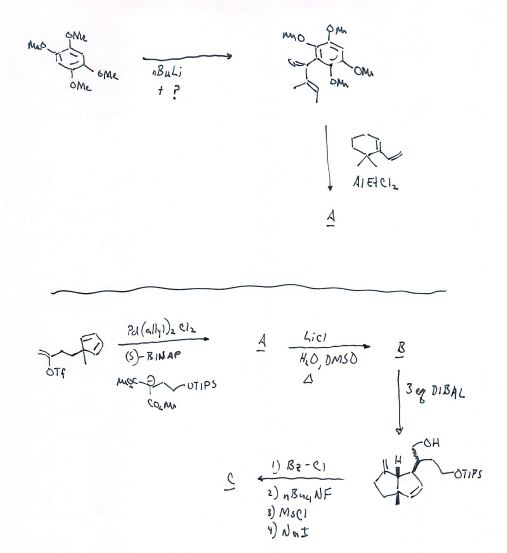 MeO OMe OMe OMe
nBuLi
+ ?
MeO OMe OMe OMe O
AlEtCl2
A
OTf
Pd(allyl)2Cl2
(S)-BINAP
MeO2C OTIPS
CO2Me
A
LiCl
H2O, DMSO
Δ
B
3 eq DIBAL
H OH OTIPS
C
1) Bz-Cl
2) nBu4NF
3) MsCl
4) NaI